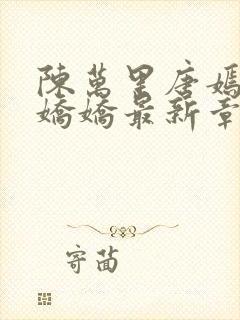 陳萬里唐嫣
嬌嬌最新章
寄菡